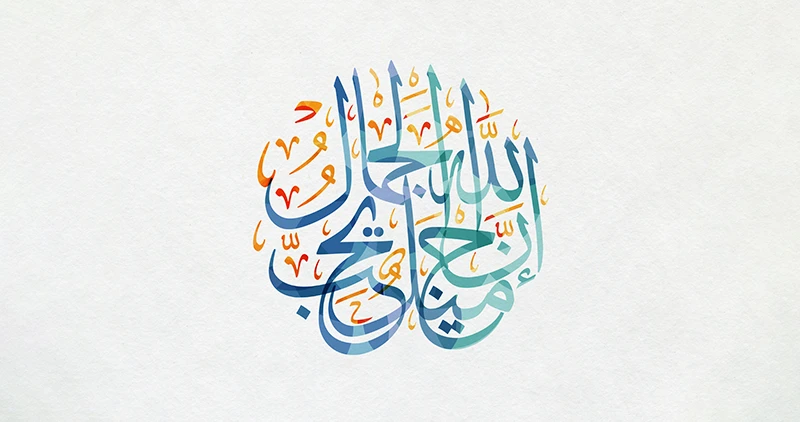 إنَّ اللَّه جميل يحبُّ الجمالُ